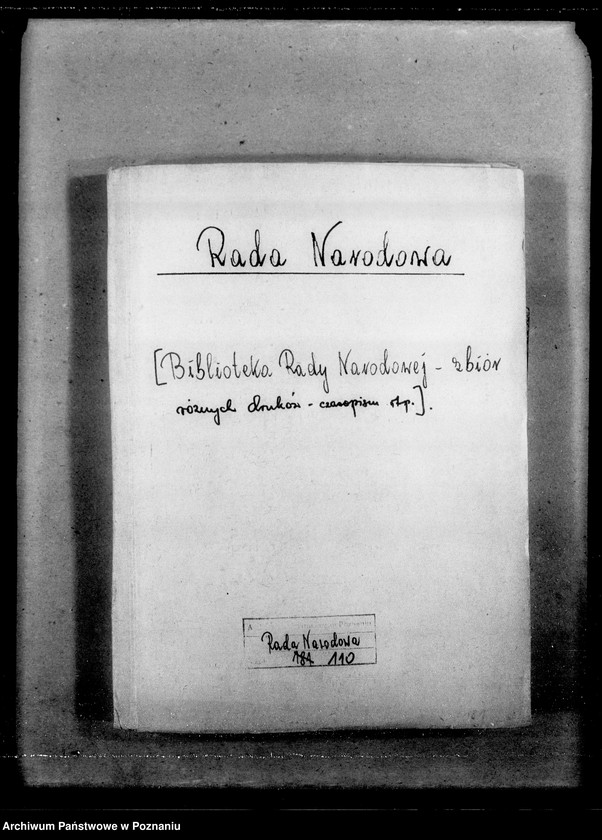 Rada Narodowa
[Biblioteka Rady Narodowej - zbiór
różnych druków - czasopism itp.].
A Poznaniu
Rada Narodowa
184 110
Archiwum Państwowe w Poznaniu